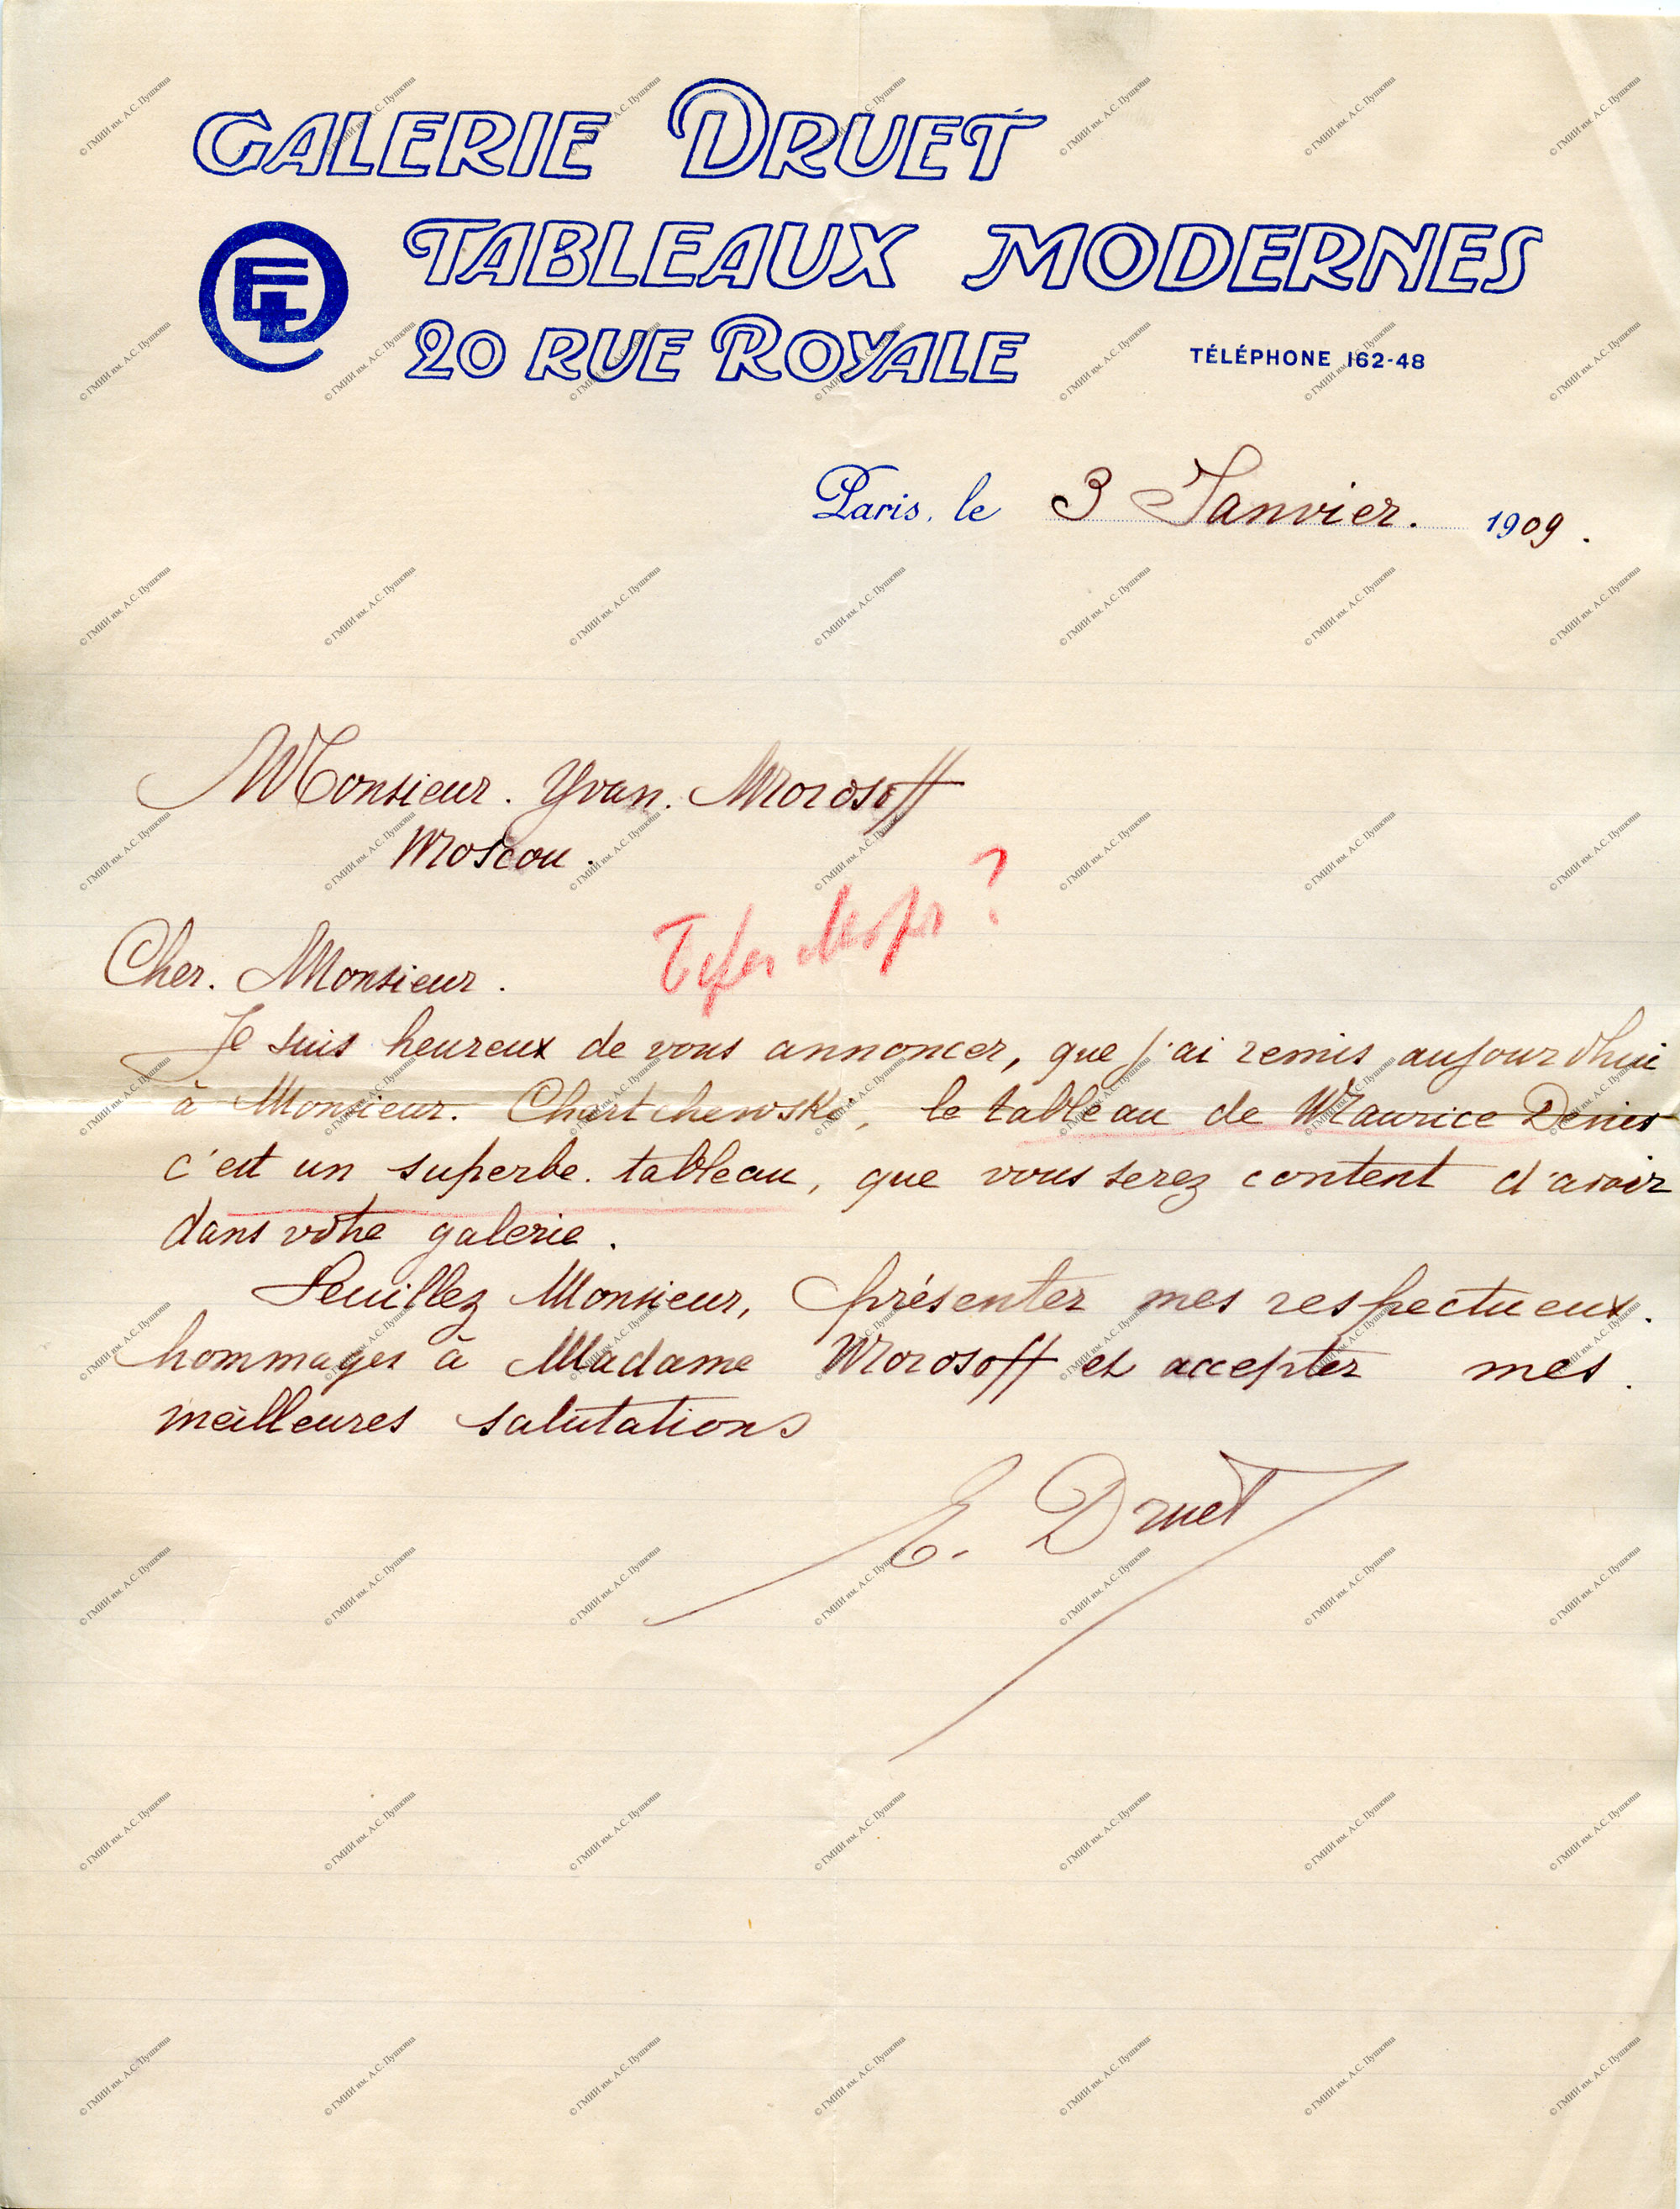 GALERIE DRUET
TABLEAUX MODERNES
20 RUE ROYALE
TÉLÉPHONE 162-48
Paris, le 3 Janvier. 1909.
Monsieur. Yvan. Morosoff
Moscou.
?
Cher. Monsieur.
Je suis heureux de vous annoncer, que j'ai remis aujourdhui
à Monsieur. Chartchewski, le tableau de Maurice Denis
c'est un superbe. tableau, que vous serez content d'avoir
dans votre galerie.
Veuillez Monsieur, présenter mes respectueux.
hommages à Madame Morosoff et accepter mes.
meilleures salutations
E. Druet
© ГМИИ им. А.С. Пушкина